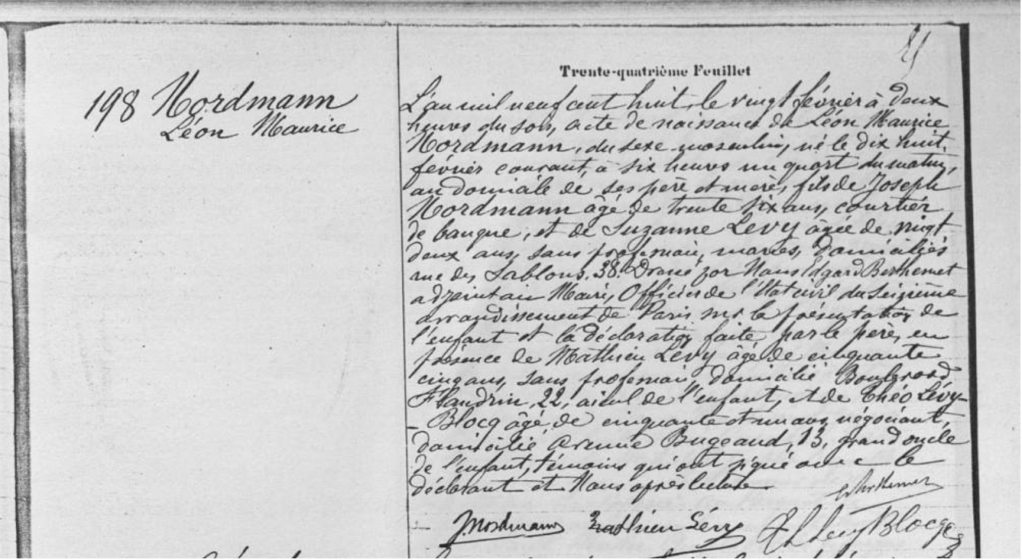 Trente-quatrième Feuillet
198 Nordmann
Léon Maurice
L'an mil neuf cent huit, le vingt février à deux
heures du soir, acte de naissance de Léon Maurice
Nordmann, du sexe masculin, né le dix huit
février courant, à six heures un quart du matin,
au domicile de ses père et mère, fils de Joseph
Nordmann âgé de trente six ans, courtier
de banque, et de Suzanne Lévy âgée de vingt
deux ans, sans profession, mariés, domiciliés
rue des Sablons, 38. Dressé par Nous Edgard Berthemet
adjoint au Maire, Officier de l'Etat civil du Seizième
arrondissement de Paris sur la présentation de
l'enfant et la déclaration faite par le père, en
présence de Mathieu Lévy âgé de cinquante
cinq ans, sans profession, domicilié Boulevard
Flandrin, 22, aïeul de l'enfant, et de Théo Lévy-
Blocq âgé de cinquante et un ans, négociant,
domicilié Avenue Bugeaud, 13, grand oncle
de l'enfant, témoins qui ont signé avec le
déclarant et Nous après lecture.
J. Nordmann Mathieu Lévy Th Levy Blocq